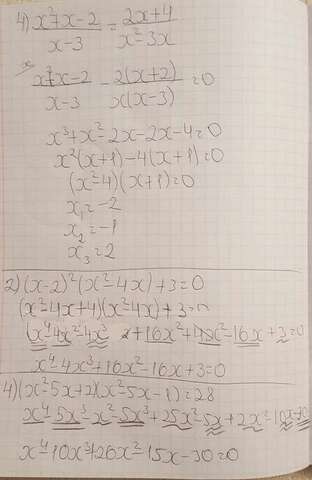 4) x²+x-2 / x-3 = 2x+4 / x²-3x
x x²+x-2 / x-3 - 2(x+2) / x(x-3) = 0
x³+x²-2x-2x-4=0
x²(x+1)-4(x+1)=0
(x²-4)(x+1)=0
x₁=-2
x₂=-1
x₃=2
2)(x-2)²(x²-4x)+3=0
(x²-4x+4)(x²-4x)+3=0
x⁴-4x³+16x²-16x+3=0
4)(x²-5x+2)(x²-5x-1)=28
x⁴-5x³-x²-5x³+25x²+5x+2x²-10x
x⁴-10x³+26x²-15x-30=0